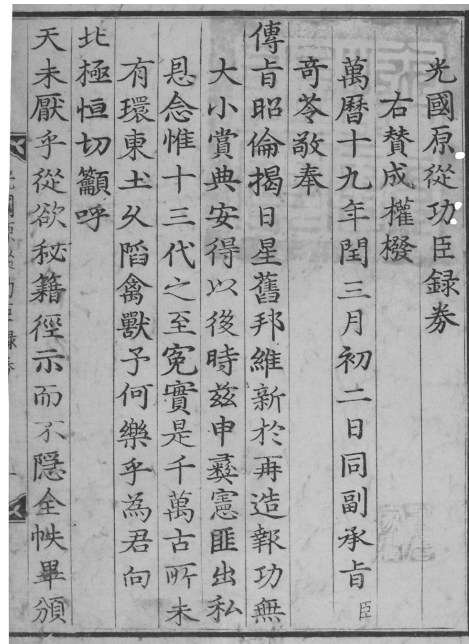 光國原從功臣録劵
右賛成權橃
萬曆十九年閏三月初二日同副承㫖臣
奇苓敬奉
傳㫖昭倫揭日星舊邦維新於再造報功無
大小賞典安得以後時玆申彝憲匪出私
恩念惟十三代之至寃實是千萬古所未
有環東土久陷禽獸予何樂乎為君向
北極恒切籲呼
天未厭乎從欲秘籍徑示而不隱全帙畢頒